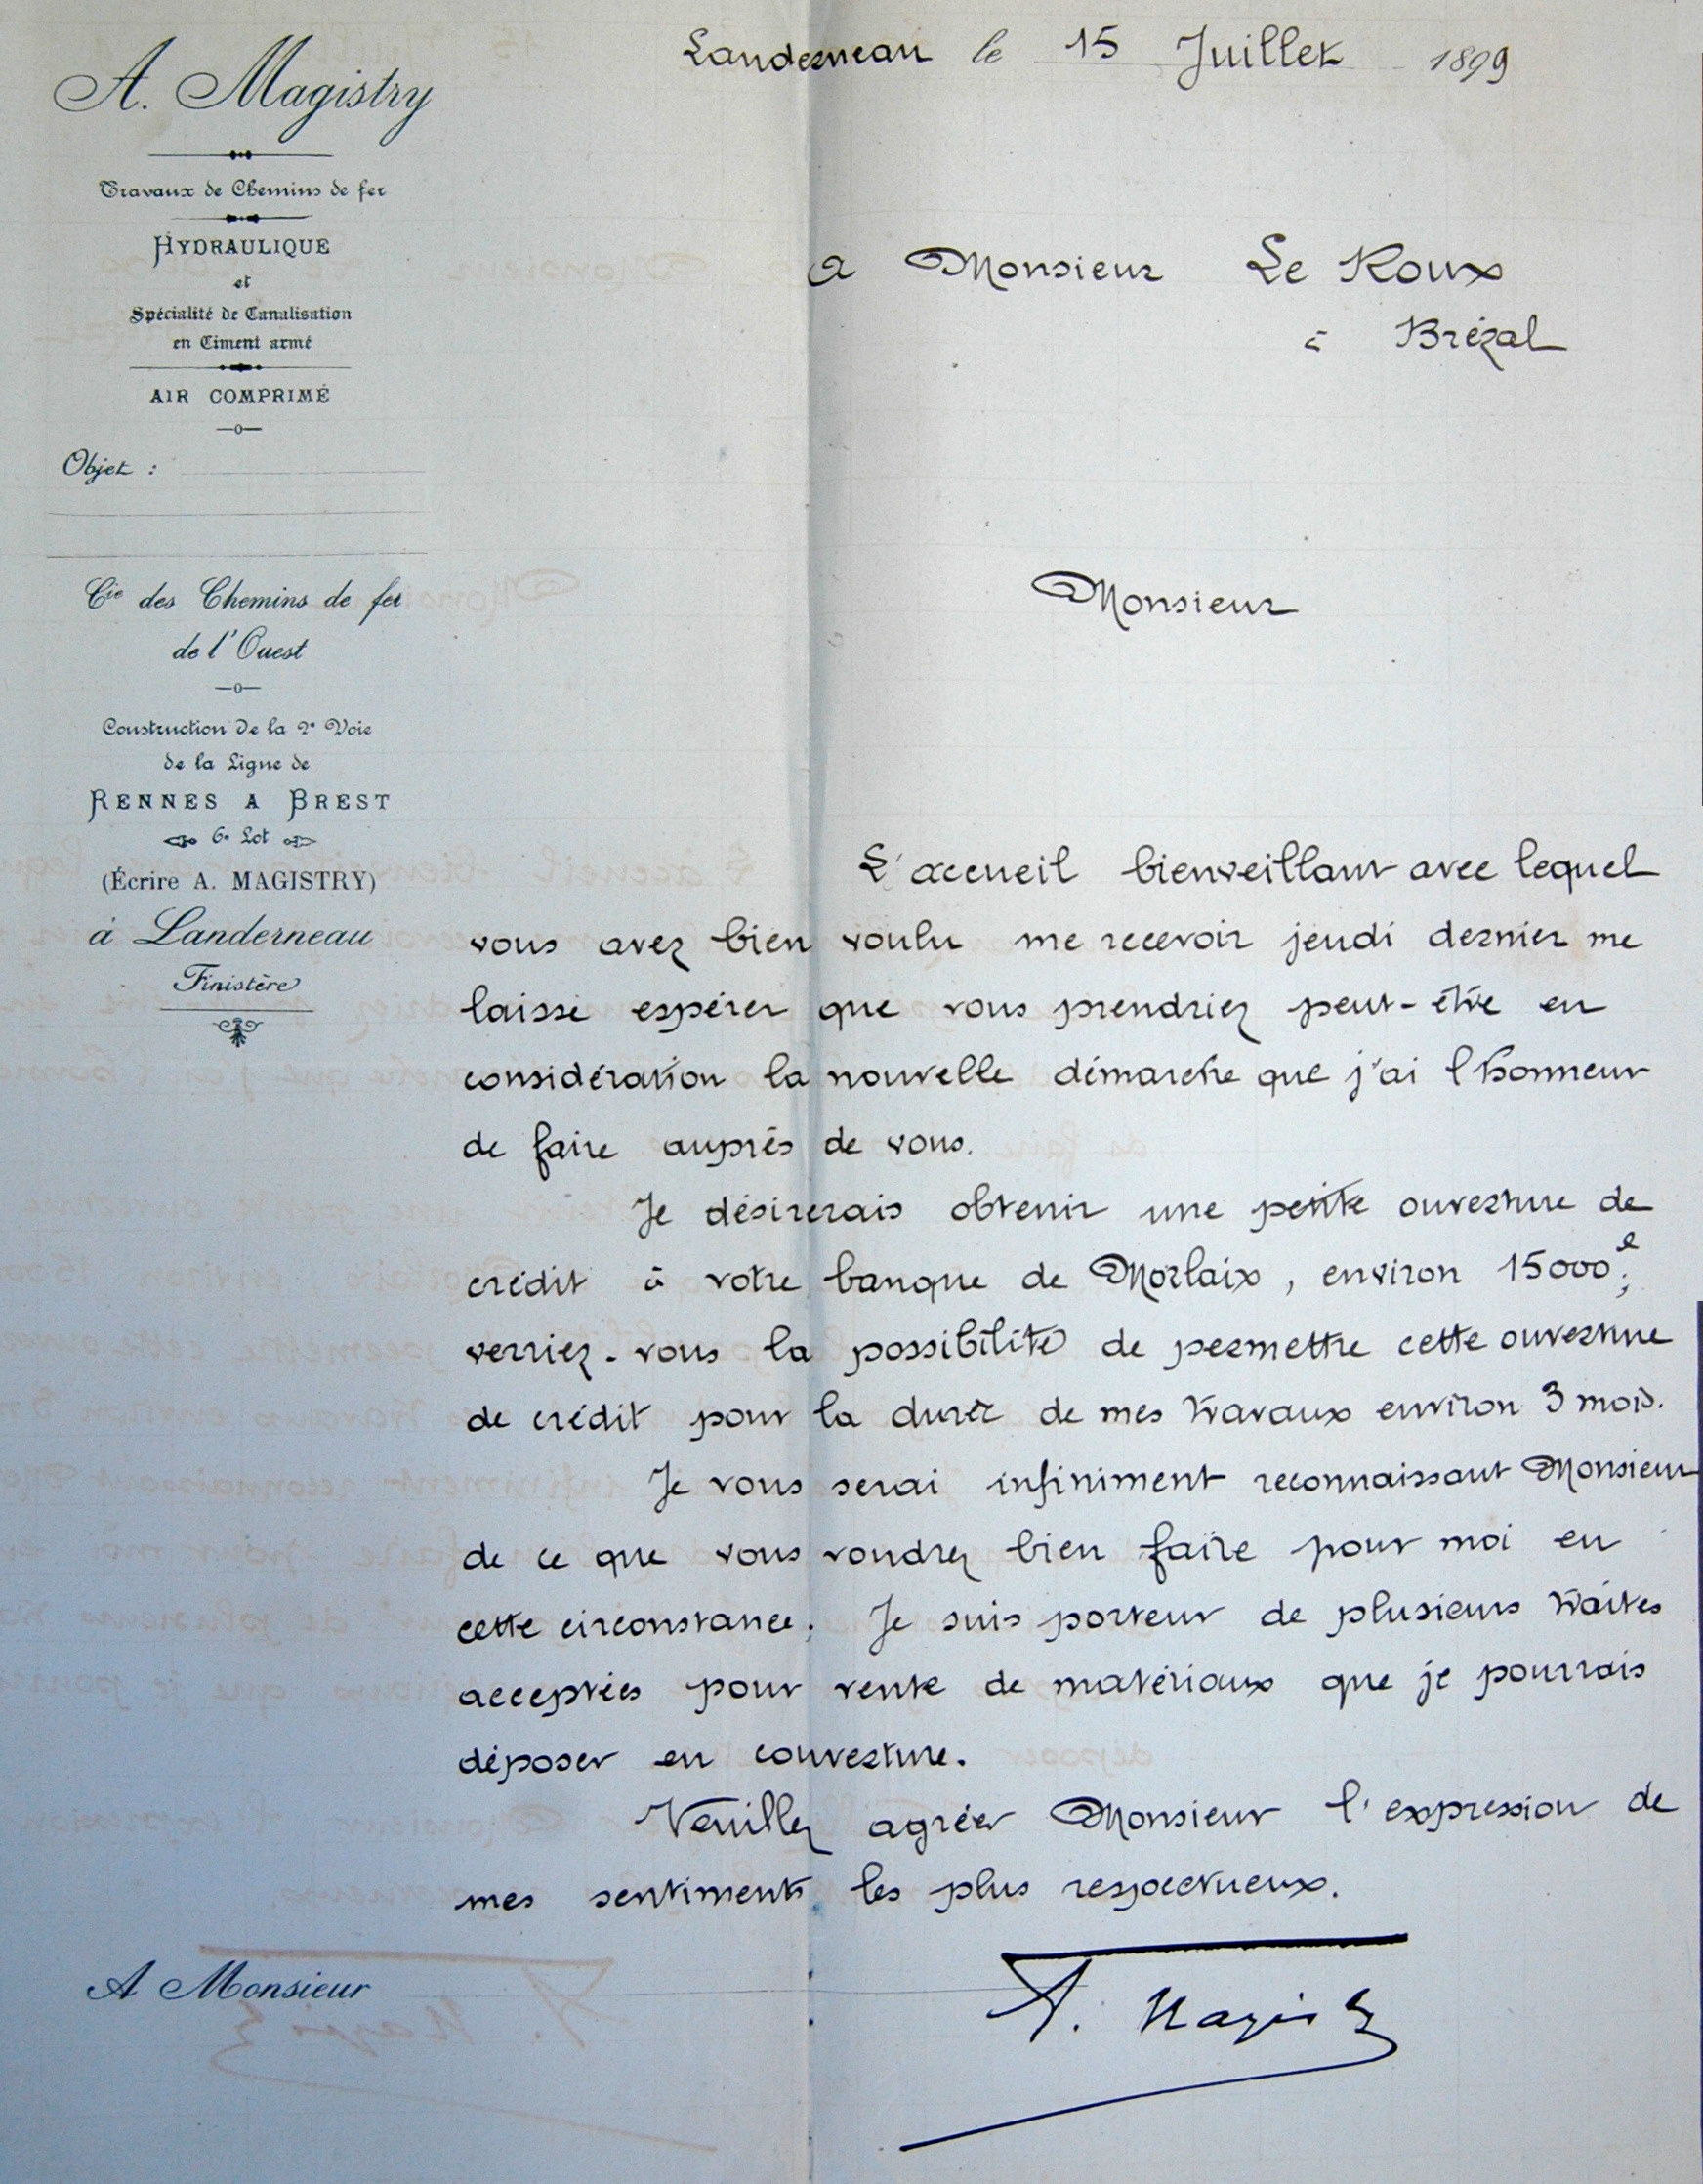 A. Magistry
Travaux de Chemins de fer
HYDRAULIQUE
et
Spécialité de Canalisation
en Ciment armé
AIR COMPRIMÉ
Objet :
Cie des Chemins de fer
de l'Ouest
Construction de la 2e Voie
de la Ligne de
RENNES A BREST
6e Lot
(Écrire A. MAGISTRY)
à Landerneau
Finistère
Landerneau le 15 Juillet 1899
a Monsieur Le Roux
à Brézal
Monsieur
L'accueil bienveillant avec lequel
vous avez bien voulu me recevoir jeudi dernier me
laisse espérer que vous prendriez peut-être en
considération la nouvelle démarche que j'ai l'honneur
de faire auprès de vous.
Je désirerais obtenir une petite ouverture de
crédit à votre banque de Morlaix, environ 15000 ;
verriez-vous la possibilité de permettre cette ouverture
de crédit pour la durée de mes travaux environ 3 mois.
Je vous serai infiniment reconnaissant Monsieur
de ce que vous voudrez bien faire pour moi en
cette circonstance. Je suis porteur de plusieurs traites
acceptées pour vente de matériaux que je pourrais
déposer en couverture.
Veuillez agréer Monsieur l'expression de
mes sentiments les plus respectueux.
A Monsieur
A. Magis